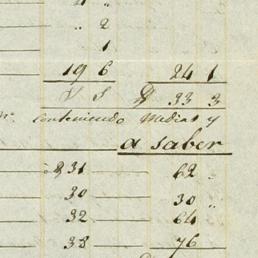 " 2
1
19 6 24 1
33 3
Conteniendo Medias y
a saber
831 62 "
30 30 "
32 64
38 76